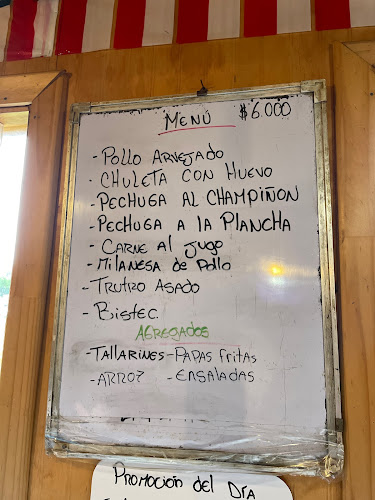 MENÚ $6.000
- POLLO ARVEJADO
- CHULETA CON HUEVO
- PECHUGA AL CHAMPIÑON
- PECHUGA A LA PLANCHA
- CARNE Al Jugo
- MilANESA de Pollo
- TRUTRO ASADO
- BisTEC
AGREGADOS
- TALLARINES - PAPAS fritas
- ARROZ - ENSALADAS
PROMOCIÓN DEL DÍA